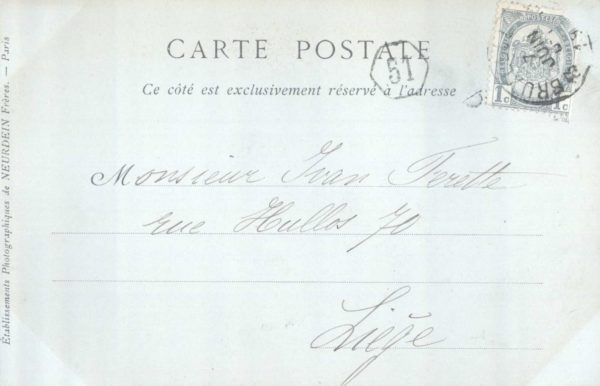 CARTE POSTALE
Ce côté est exclusivement réservé à l'adresse
51
1c 1c
JUIN
BRU
Monsieur Ivan Terette
rue Hullos 70
Liége
Établissements Photographiques de NEURDEIN Frères. — Paris